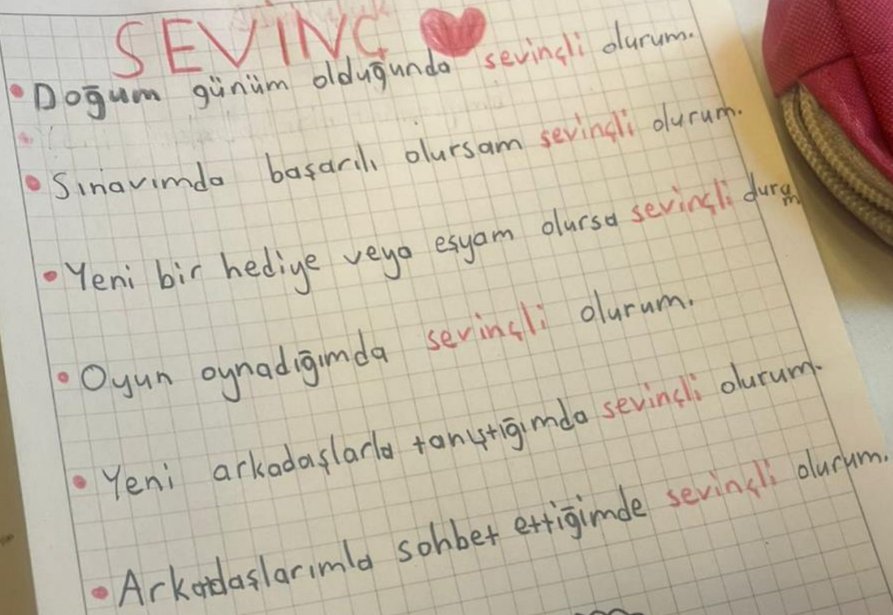 SEVİNÇ
Doğum günüm olduğunda sevinçli olurum.
Sınavımda başarılı olursam sevinçli olurum.
Yeni bir hediye veya eşyam olursa sevinçli durum
Oyun oynadığımda sevinçli olurum.
Yeni arkadaşlarla tanıştığımda sevinçli olurum.
Arkadaşlarımla sohbet ettiğimde sevinçli olurum.